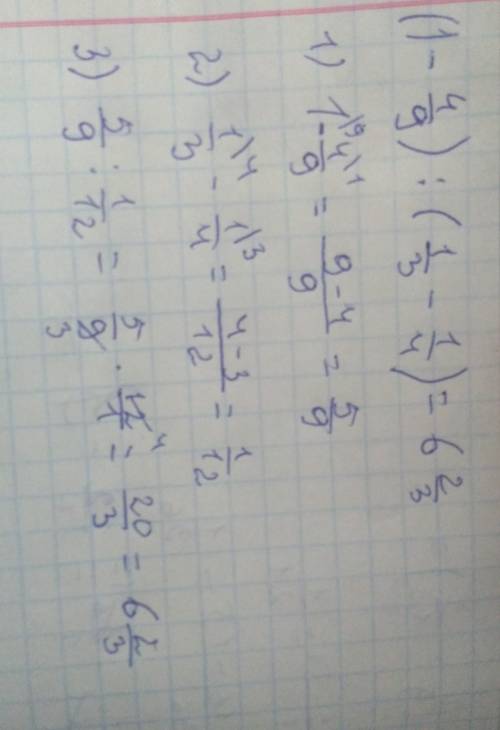 (1 - 4/9) : (1/3 - 1/4) = 6 2/3
1) 1\9 - 4\1/9 = 9-4/9 = 5/9
2) 1\4/3 - 1\3/4 = 4-3/12 = 1/12
3) 5/9 : 1/12 = 5/9 3 · 12/1 4 = 20/3 = 6 2/3